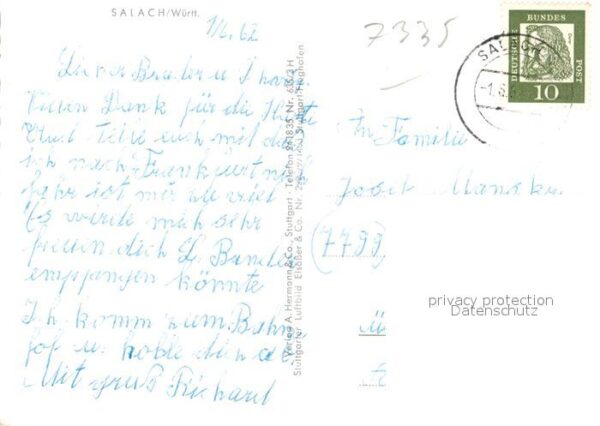 SALACH/Württ.
1/6. 62
7335
Lieber Bruder u
Vielen Dank für die Karte
Teile euch mit das
ich nach Frankfurt
fahr ist mir zu viel
Es würde mich sehr
freuen dich Lb. Bruder
empfangen könnte
Ich komm zum Bahn
hof u. hohle dich ab
Mit gruß Richard
Verlag A. Hermann & Co., Stuttgart · Telefon 241835 Nr.
Stuttgarter Luftbild Elsäßer & Co. Nr. Stuttgart-Flughafen
SALACH
-1.6.
DEUTSCHE
BUNDES
POST
10
An Familie
Josef
(7799)
privacy protection
Datenschutz